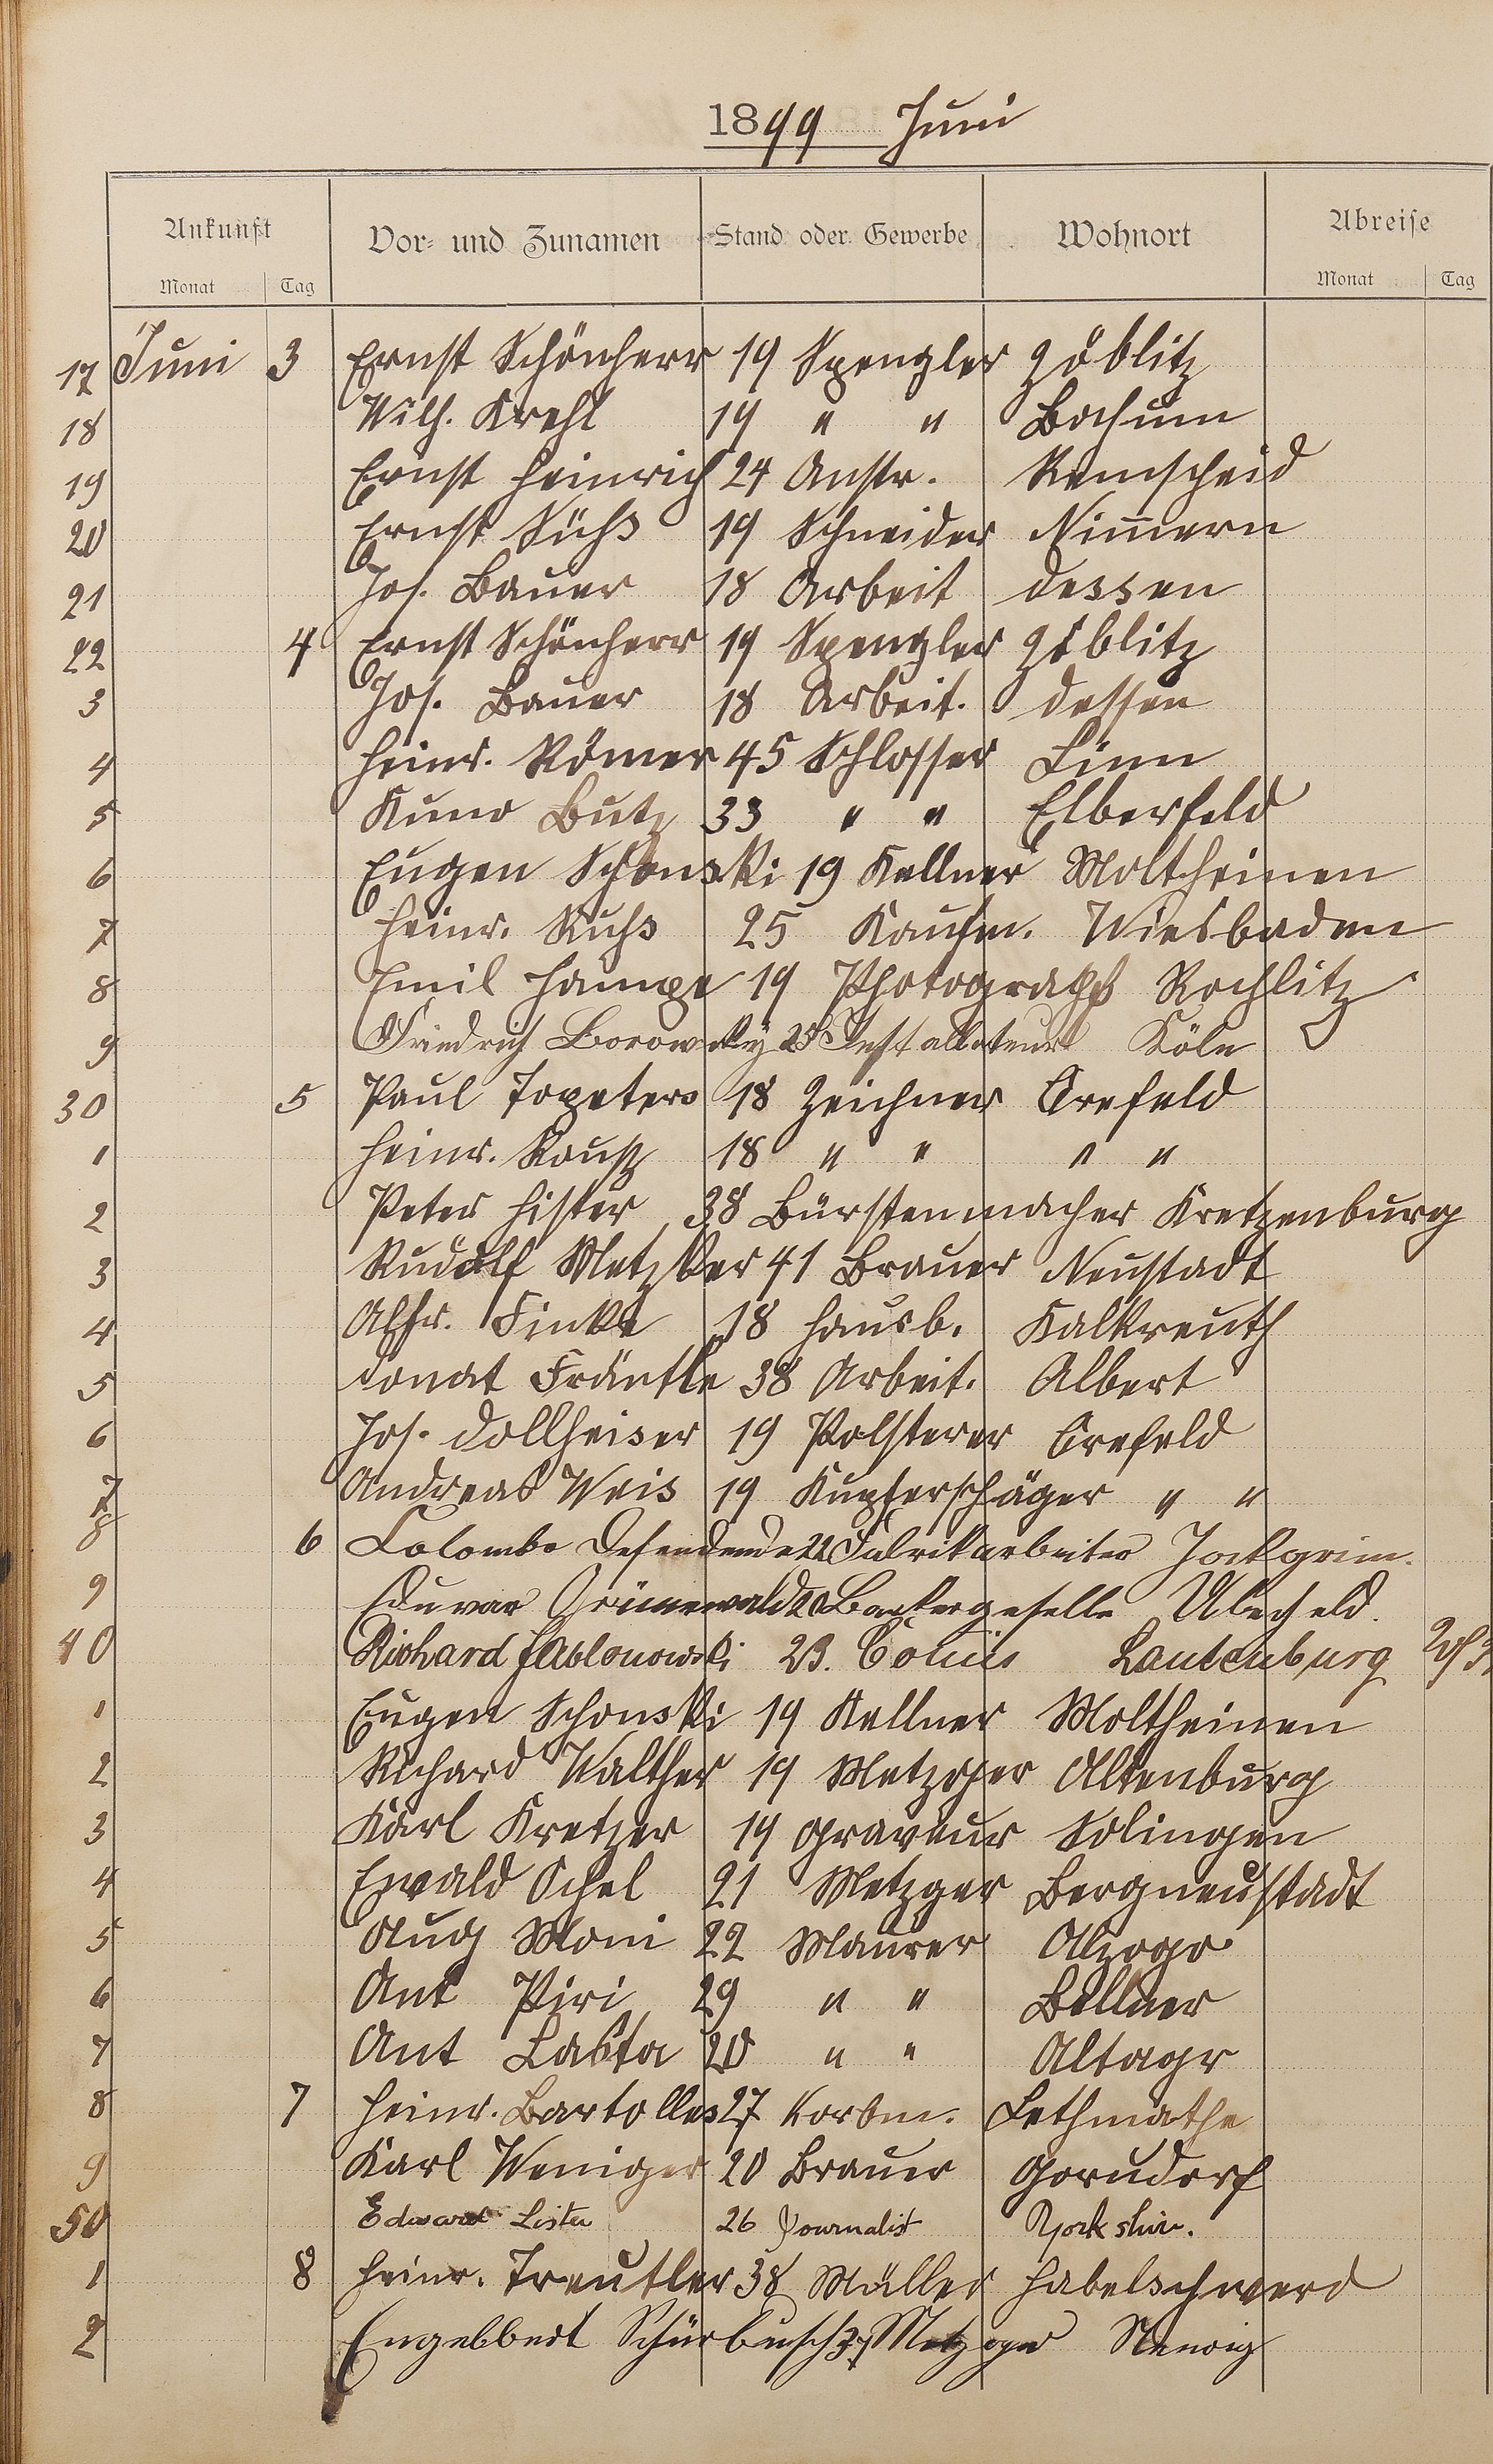 1899 Juni
Ankunft Vor- und Zunamen Stand oder Gewerbe Wohnort Abreise
Monat Tag Monat Tag
17 Juni 3 Ernst Schönherr 19 Spengler Zöblitz
18 Wilh. Krehl 19 " " Bochum
19 Ernst Heinrich 24 Anstr. Remscheid
20 Ernst Sühs 19 Schneider Nimmern
21 Jos. Bauer 18 Arbeit Dessen
22 4 Ernst Schönherr 19 Spengler Zöblitz
3 Jos. Bauer 18 Arbeit. Dessen
4 Heinr. Römer 45 Schlosser Linn
5 Kuno Butz 33 " " Elberfeld
6 Eugen Schonski 19 Kellner Moltheinen
7 Heinr. Ruhs 25 Kaufm. Wiesbaden
8 Emil Hampe 19 Photograph Rochlitz
9 Friedrich Borowsky Installateur Köln
30 5 Paul Topeters 18 Zeichner Crefeld
1 Heinr. 18 " " " "
2 Peter Hister 38 Bürstenmacher Kretzenburg
3 Rudolf Metzker 41 Brauer Neustadt
4 Alfr. Finke 18 Hausb. Kalkreuth
5 Donat 38 Arbeit. Albert
6 Jos. Dollheiser 19 Polsterer Crefeld
7 Andreas Weis 19 " "
8 6 Colombo 22 Fabrikarbeiter Jockgrim.
9 Grünewald 20 Backergeselle
40 Richard Jablonowski 23. Comis Lautenburg
1 Eugen Schonski 19 Kellner Moltheinen
2 Richard Walther 19 Metzger Altenburg
3 Karl Kretzer 19 Graveur Solingen
4 Ewald Ochel 21 Metzger Bergneustadt
5 Aug Moni 22 Maurer
6 Ant Piri 29 " " Belluer
7 Ant Lasta 20 " " Altagr
8 7 Heinr. Bartolles 27 Korbm. Lethmathe
9 Karl Weniger 20 Brauer Gorndorf
50 Edward Lister 26 Journalist Yorkshire.
1 8 Heinr. Treutler 38 Müller Habelschwerd
2 Engelbert Schürbusch Metzger